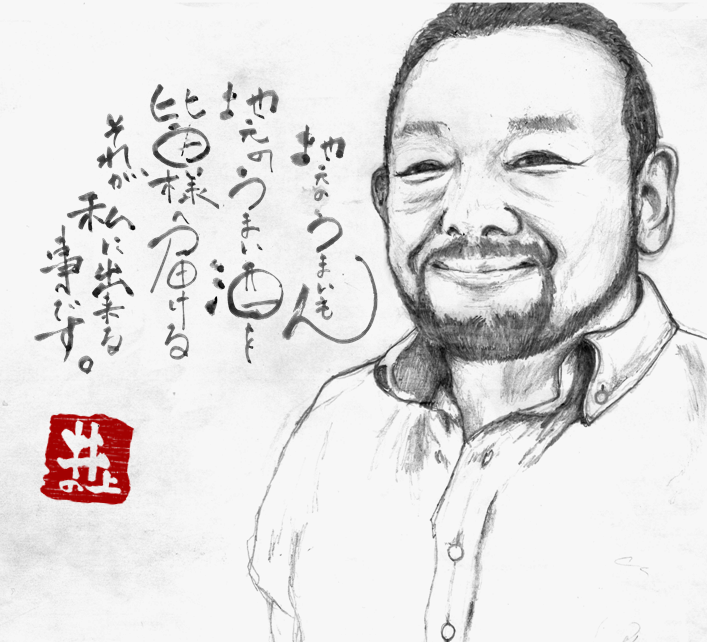 地元のうまいもん
地元のうまい酒を
皆様へ届ける
それが私に出来る
事です。
井の上